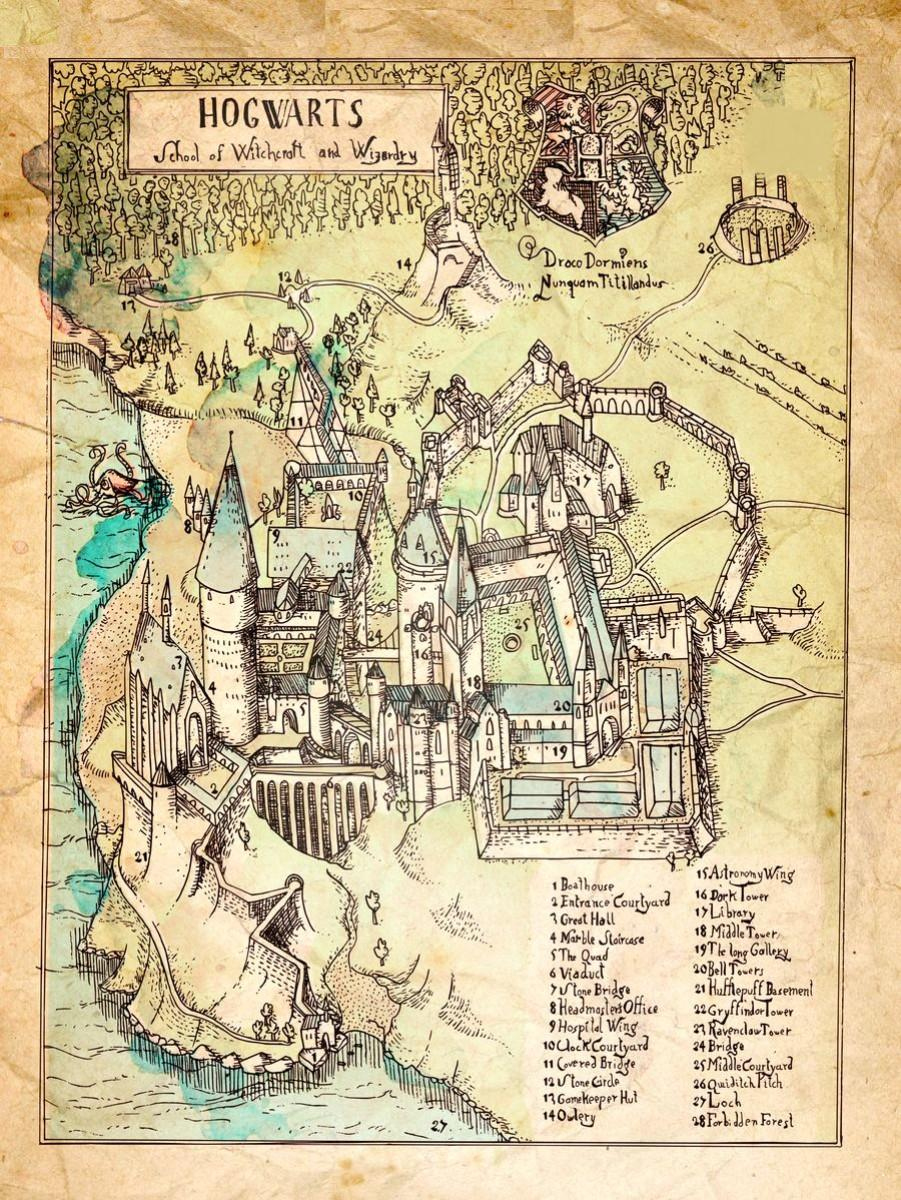 HOGWARTS
School of Witchcraft and Wizardry
H
Draco Dormiens
Nunquam Titillandus
28
26
14
12
13
11
10
17
8
9
15
22
25
24
16
3
4
18
5
20
23
19
2
21
27
1 Boathouse
2 Entrance Courtyard
3 Great Hall
4 Marble Staircase
5 The Quad
6 Viaduct
7 Stone Bridge
8 Headmasters Office
9 Hospital Wing
10 Clock Courtyard
11 Covered Bridge
12 Stone Circle
13 Gamekeeper Hut
14 Owlery
15 Astronomy Wing
16 Dark Tower
17 Library
18 Middle Tower
19 The long Gallery
20 Bell Towers
21 Hufflepuff Basement
22 Gryffindor Tower
23 Ravenclaw Tower
24 Bridge
25 Middle Courtyard
26 Quiditch Pitch
27 Loch
28 Forbidden Forest